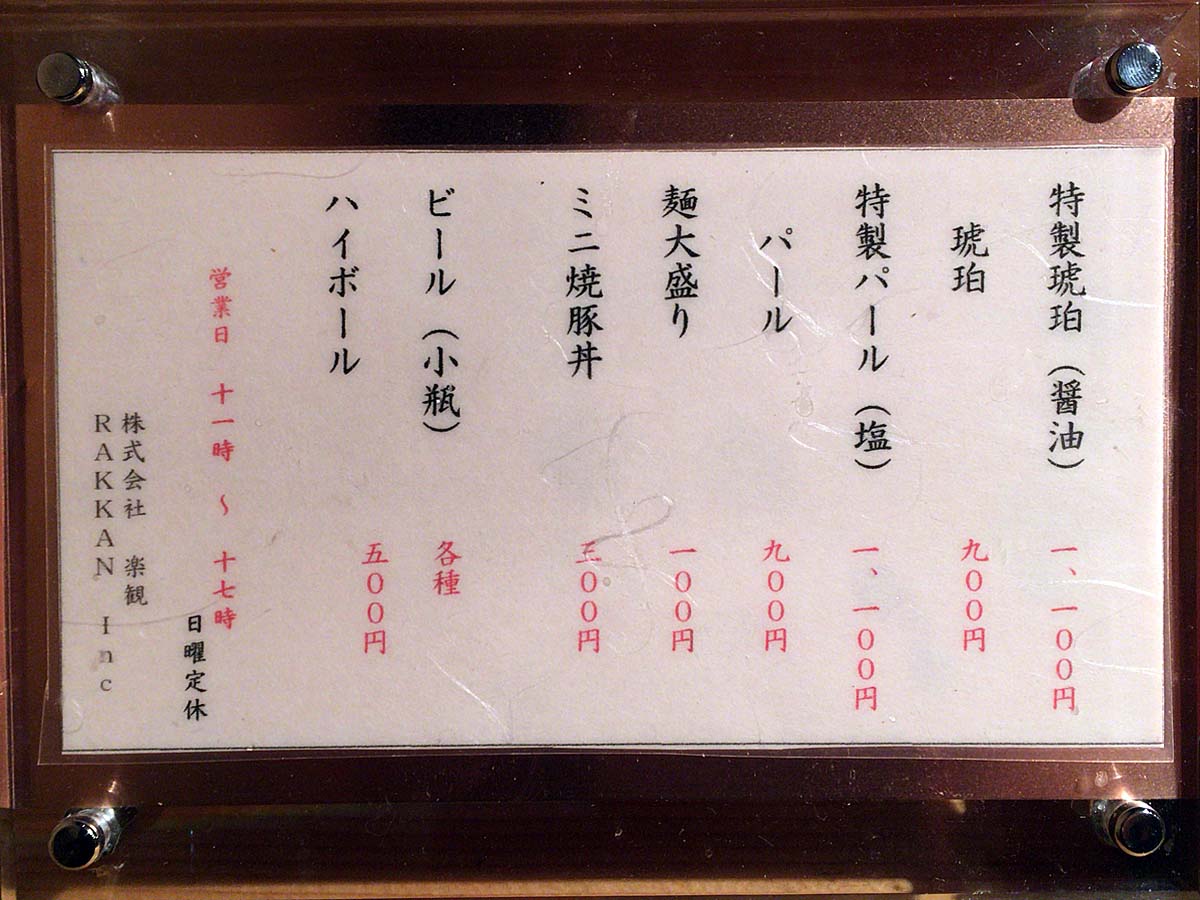 特製琥珀（醤油） 一、一００円
琥珀 九００円
特製パール（塩） 一、一００円
パール 九００円
麺大盛り 一００円
ミニ焼豚丼 三００円
ビール（小瓶） 各種
ハイボール 五００円
営業日 十一時 ～ 十七時
日曜定休
株式会社 楽観
RAKKAN Inc